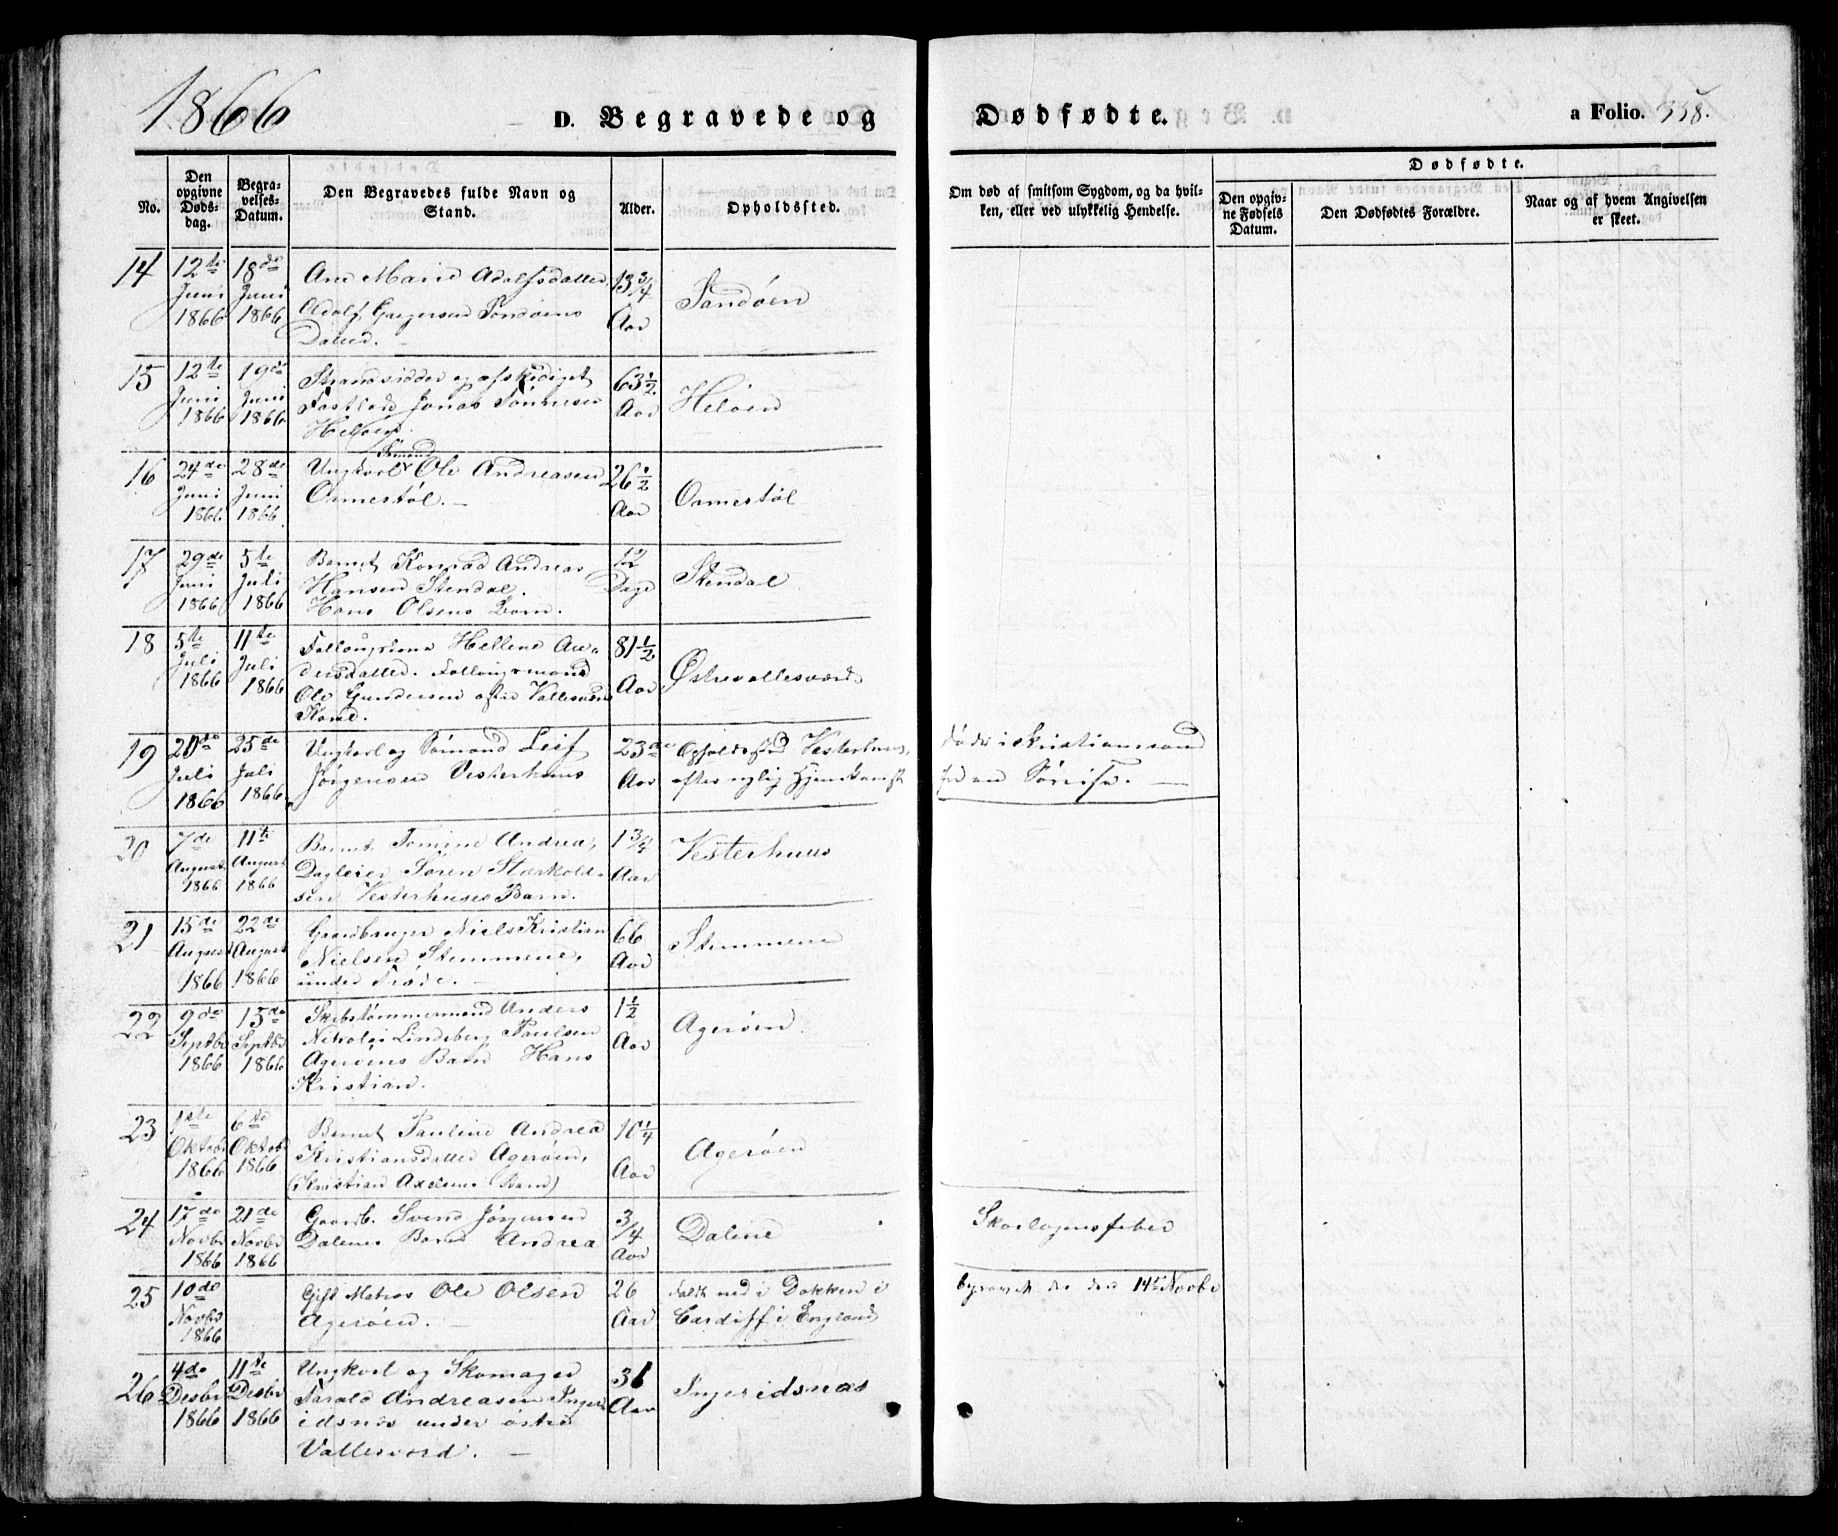 1866
D. Begravede og Dødfødte. a Folio. 338.
No.
Den opgivne Døds-dag.
Begra-velses-Datum.
Den Begravedes fulde Navn og Stand.
Alder.
Opholdssted.
Om død af smitsom Sygdom, og da hvil-ken, eller ved ulykkelig Hendelse.
Dødfødte.
Den opgiv-ne Fødsels Datum.
Den Dødfødtes Forældre.
Naar og af hvem Angivelsen er skeet.
14 12te Juni 1866 18de Juni 1866
Ane Marie Adolfsdatter,
Adolf Gregersen Sandøens
Datter.
13 3/4 Aar Sandøen
15 12te Juni 1866 19de Juni 1866
Strandsidder og afskediget
Fastlods Jonas Tønnesen
Heløen.
63 1/2 Aar Heløen
16 24de Juni 1866 28de Juni 1866
Ungkarl Sømand Ole Andreasen
Ormestøl.
26 1/2 Aar Ormestøl
17 29de Juni 1866 5te Juli 1866
Barnet Konrad Andreas
Hansen Stendal.
Hans Olsens Barn.
12 Dage Stendal
18 5te Juli 1866 11te Juli 1866
Hellene An-
dersdatter.
Ole Gundersen østre Vallesværds
Kone.
81 1/2 Aar Østrevallesværd
19 20de Juli 1866 25de Juli 1866
Ungkarl og Sømand Leif
Jørgensen Vesterhuus
23de Aar
Opholdssted Vesterhuus,
efter nylig Hjemkomst
døde i Kristianssand
fra en Sørreise.
20 7de August 1866 11te August 1866
Barnet Tomine Andrea,
Dagleier Søren Starkold-
sen Vesterhuses Barn.
1 3/4 Aar Vesterhuus
21 15de August 1866 22de August 1866
Gaardbruger Niels Kristian
Nielsen Stemmene,
under Trøde.
66 Aar Stemmene
22 9de Septbr 1866 15de Septbr 1866
Skibstømmermand Anders
Nikolai Lindeberg Paulsen
Agerøens Barn Hans
Kristian.
1 1/2 Aar Agerøen.
23 1ste Oktobr 1866 6te Oktobr 1866
Barnet Pauline Andrea
Kristiansdatter Agerøen,
(Christian Axelsens Barn)
10 1/4 Aar Agerøen
24 17de Novbr 1866 21de Novbr 1866
Gaardb. Svend Jørgensen
Dalenes Barn Andrea
3/4 Aar Dalene
Skarlagensfeber
25 10de Novbr 1866
Gift Matros Ole Olsen
Agerøen.
26 Aar
faldt ned i Dokken i
Cardiff i England
begravet der den 14de Novbr
26 4de Desbr 1866 11te Desbr 1866
Ungkarl og Skomager
Harald Andreasen Inger-
idsnæs under østre
Vallesværd.
31 Aar Ingeridsnæs